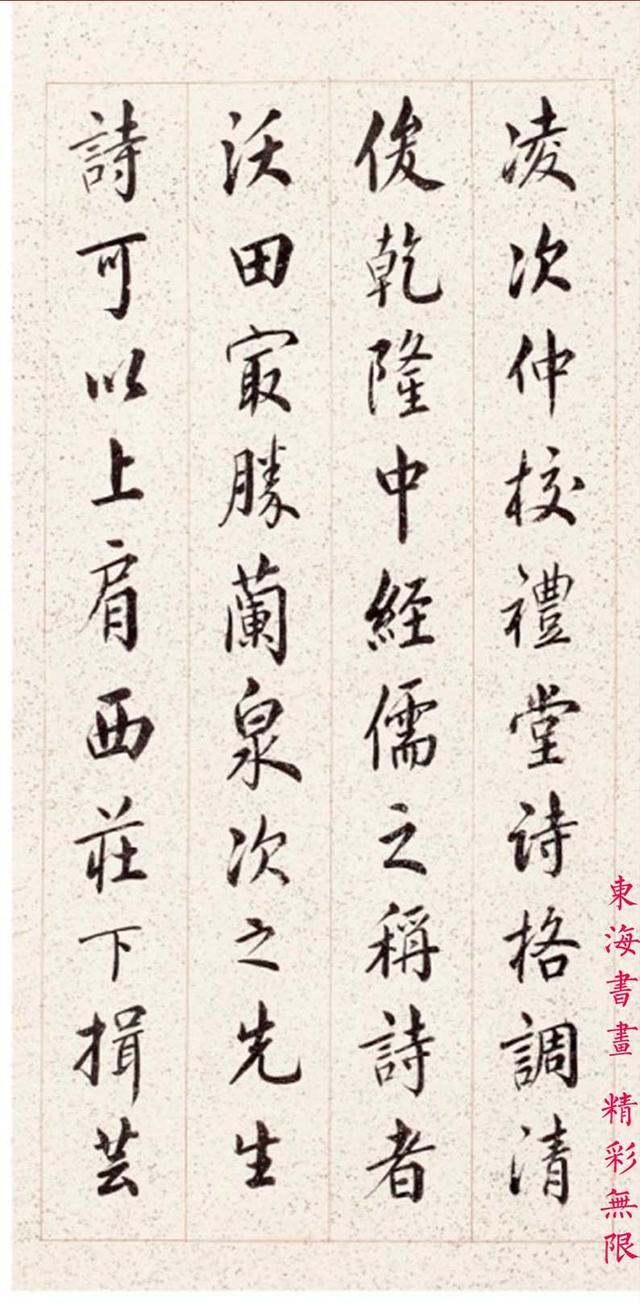 凌次仲校禮堂詩格調清
俊乾隆中經儒之稱詩者
沃田冣勝蘭泉次之先生
詩可以上肩西莊下揖芸
東海書畫 精彩無限